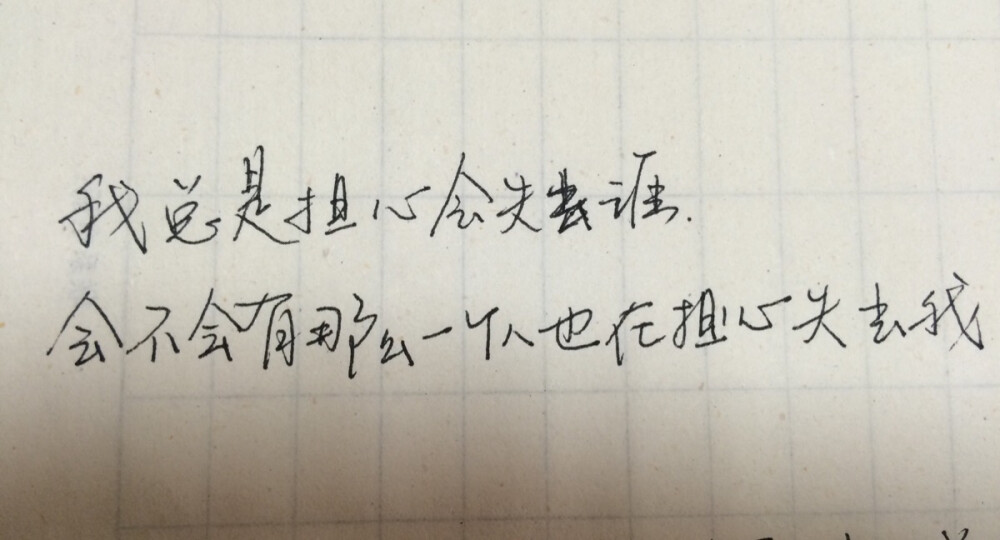 我总是担心会失去谁.
会不会有那么一个人也在担心失去我